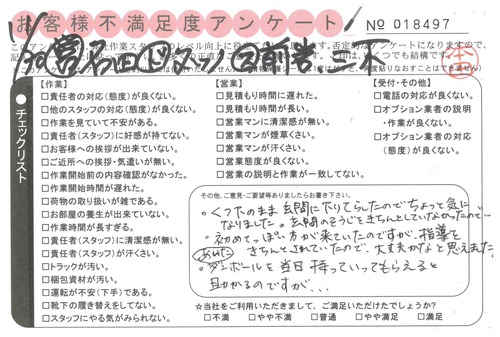 お客様不満足度アンケート
No 018497
チェックリスト
【作業】
□責任者の対応(態度)が良くない。
□他のスタッフの対応(態度)が良くない。
□作業を見ていて不安がある。
□責任者(スタッフ)に好感が持てない。
□お客様への挨拶が出来ていない。
□ご近所への挨拶・気遣いが無い。
□作業開始前の内容確認がなかった。
□作業開始時間が遅れた。
□荷物の取り扱いが雑である。
□お部屋の養生が出来ていない。
□作業時間が長すぎる。
□責任者(スタッフ)に清潔感が無い。
□責任者(スタッフ)が汗くさい。
□トラックが汚い。
□梱包資材が汚い。
□運転が不安(下手)である。
□靴下の履き替えをしてない。
□スタッフにやる気がみられない。
【営業】
□見積もり時間に遅れた。
□見積り時間が長い。
□営業マンに清潔感が無い。
□営業マンが煙草くさい。
□営業マンが汗くさい。
□営業態度が良くない。
□営業の説明と作業が一致してない。
【受付・その他】
□電話の対応が良くない。
□オプション業者の説明
・作業が良くない。
□オプション業者の対応
(態度)が良くない。
その他、ご意見・ご要望等ありましたらお書き下さい。
・くつ下のまま玄関に下りてらしたのでちょっと気に
なりました。玄関のそうじをきちんとしていなかったので…
・初めてっぽい方が来ていたのですが、指導を
きちんとされていたので、大丈夫かなと思えました。
・ダンボールを当日持っていってもらえると
助かるのですが、、、
☆当社をご利用いただきまして、ご満足いただけたでしょうか?
□不満 □やや不満 □普通 □やや満足 □満足